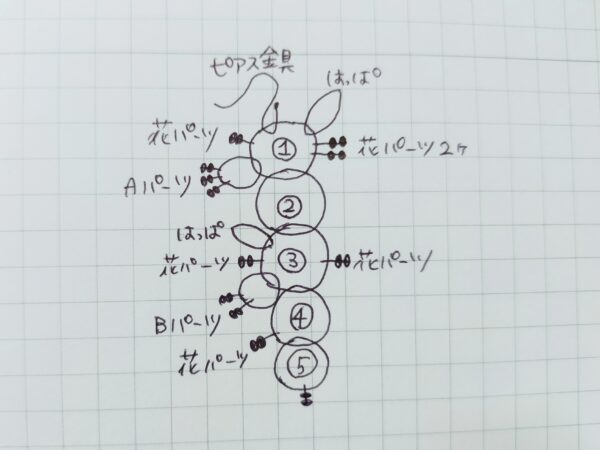 ピアス金具
はっぱ
花パーツ
①
花パーツ2ヶ
Aパーツ
②
はっぱ
花パーツ
③
花パーツ
Bパーツ
④
花パーツ
⑤